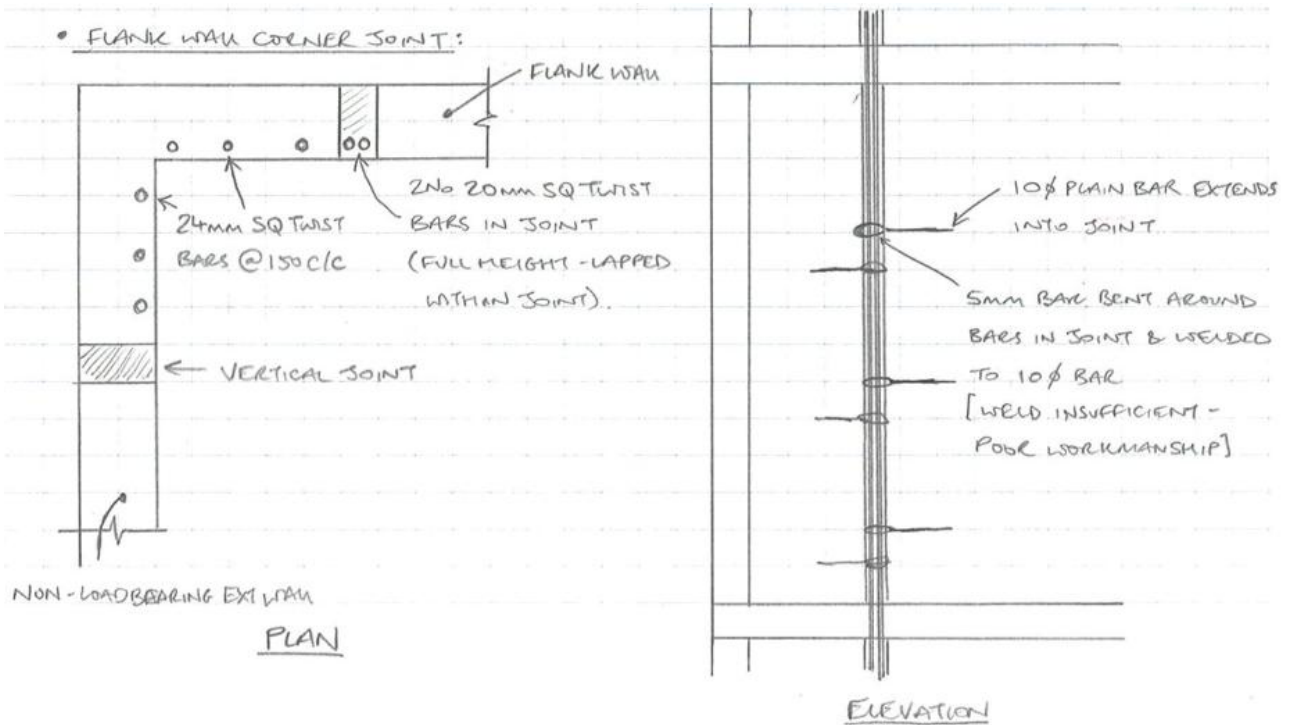 • FLANK WALL CORNER JOINT:
FLANK WALL
24mm SQ TWIST
BARS @ 150 C/C
2No 20mm SQ TWIST
BARS IN JOINT
(FULL HEIGHT - LAPPED
WITHIN JOINT).
VERTICAL JOINT
NON-LOADBEARING EXT WALL
PLAN
10ϕ PLAIN BAR EXTENDS
INTO JOINT
5mm BAR BENT AROUND
BARS IN JOINT & WELDED
TO 10ϕ BAR
[WELD INSUFFICIENT -
POOR WORKMANSHIP]
ELEVATION